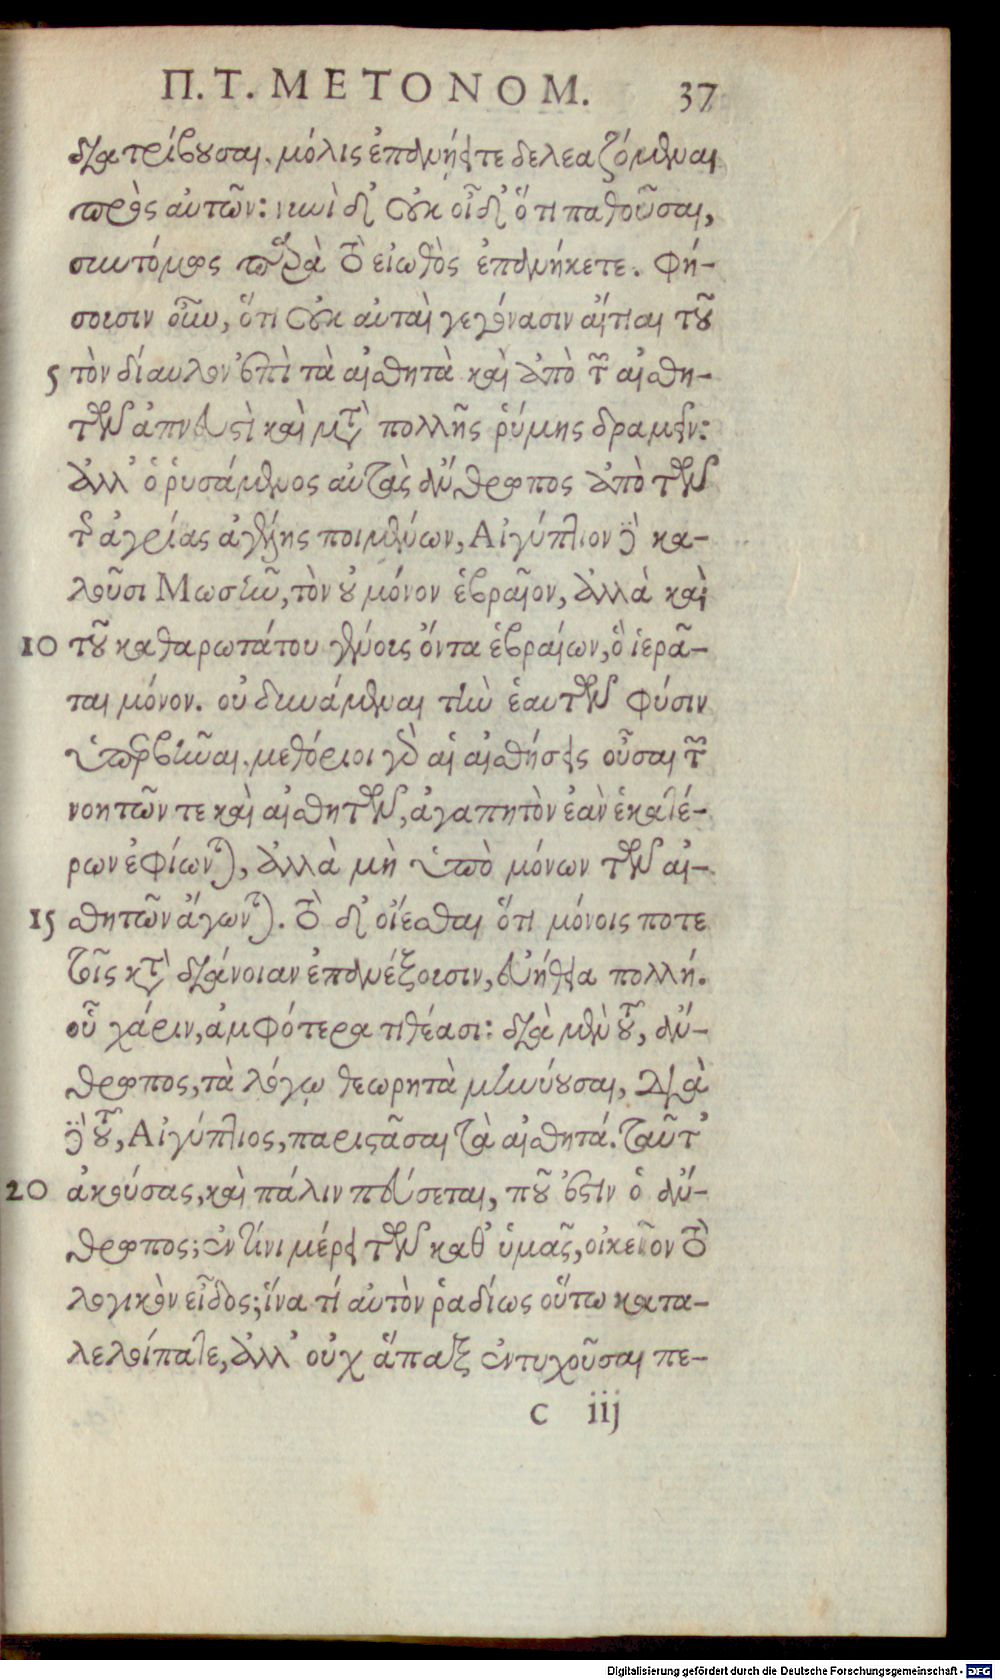 Π.Τ. ΜΕΤΟΝΟΜ. 37
διατρίβουσαι, μόλις ἐπανῄειτε δελεαζόμεναι
πρὸς αὐτῶν: νυνὶ δ' οὐκ οἶδ' ὅτι παθοῦσαι,
συντόμως παρὰ τὸ εἰωθὸς ἐπανήκετε. Φή-
σουσιν οὖν, ὅτι οὐκ αὐταὶ γεγόνασιν αἴτιαι τοῦ
5 τὸν δίαυλον ἐπὶ τὰ αἰσθητὰ καὶ ἀπὸ τῶν αἰσθη-
τῶν ἀπνευστὶ καὶ μετὰ πολλῆς ῥύμης δραμεῖν:
ἀλλ' ὁ ῥυσάμενος αὐτὰς ἄνθρωπος ἀπὸ τῶν
τῆς ἀγρίας ἀγέλης ποιμένων, Αἰγύπτιον δὲ κα-
λοῦσι Μωσῆν, τὸν οὐ μόνον ἑβραῖον, ἀλλὰ καὶ
10 τοῦ καθαρωτάτου γένους ὄντα ἑβραίων, ὃ ἱερᾶ-
ται μόνον. οὐ δυνάμεναι τὴν ἑαυτῶν φύσιν
ὑπερβῆναι. μεθόριοι γὰρ αἱ αἰσθήσεις οὖσαι τῶν
νοητῶν τε καὶ αἰσθητῶν, ἀγαπητὸν ἐὰν ἑκατέ-
ρων ἐφίωνται, ἀλλὰ μὴ ὑπὸ μόνων τῶν αἰ-
15 σθητῶν ἄγωνται. τὸ δ' οἴεσθαι ὅτι μόνοις ποτε
τοῖς κατὰ διάνοιαν ἐπανέξουσιν, εὐήθεια πολλή.
οὗ χάριν, ἀμφότερα τιθέασι: διὰ μὲν τοῦ, ἄν-
θρωπος, τὰ λόγῳ θεωρητὰ μηνύουσαι, διὰ
δὲ τοῦ, Αἰγύπτιος, παριστᾶσαι τὰ αἰσθητά. ταῦτ'
20 ἀκούσας, καὶ πάλιν πεύσεται, ποῦ ἐστὶν ὁ ἄν-
θρωπος; ἐν τίνι μέρει τῶν καθ' ὑμᾶς, οἰκεῖον τὸ
λογικὸν εἶδος; ἵνα τί αὐτὸν ῥαδίως οὕτω κατα-
λελοίπατε, ἀλλ' οὐχ ἅπαξ ἐντυχοῦσαι πε-
c iij
Digitalisierung gefördert durch die Deutsche Forschungsgemeinschaft - DFG